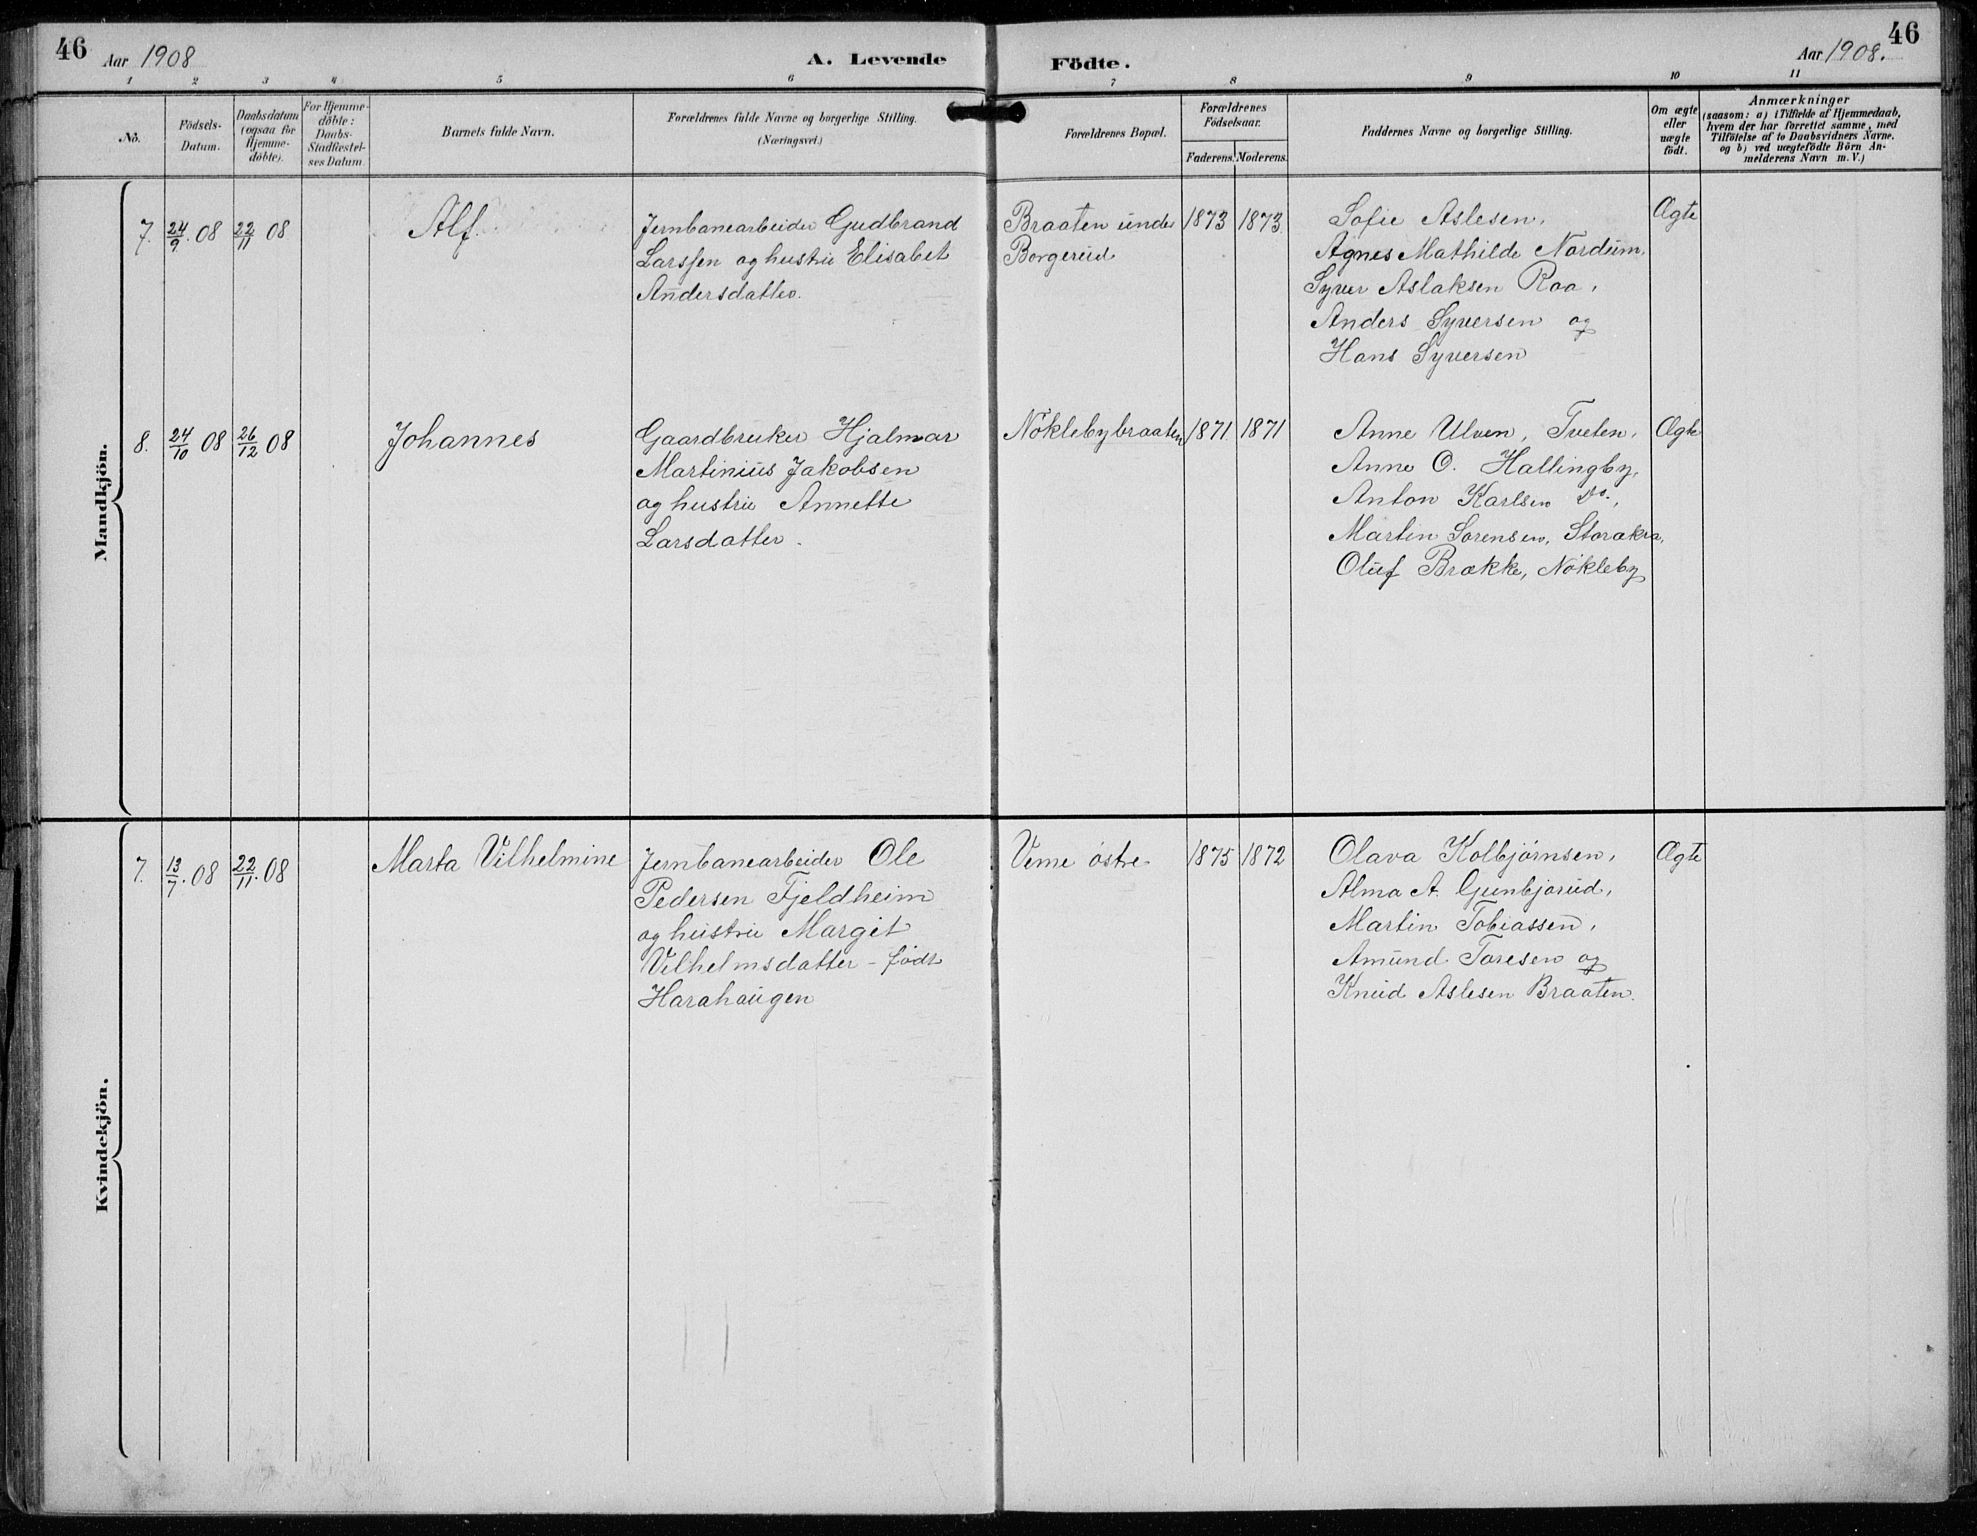 46
Aar 1908
A. Levende
Födte.
Aar 1908.
46
1 2 3 4 5 6 7 8 9 10 11
No.
Födsels-
Datum.
Daabsdatum
(ogsaa for
Hjemme-
döbte).
For Hjemme-
döbte:
Daabs-
Stadfæstel-
ses Datum
Barnets fulde Navn.
Forældrenes fulde Navne og borgerlige Stilling.
(Næringsvei.)
Forældrenes Bopæl.
Forældrenes
Födselsaar.
Faderens. Moderens.
Faddernes Navne og borgerlige Stilling.
Om ægte
eller
uægte
født.
Anmærkninger
(saasom: a) i Tilfælde af Hjemmedaab,
hvem der har forrettet samme, med
Tilföielse af to Daabsvidners Navne.
og b) ved uægtefödte Börn An-
melderens Navn m. V.)
Mandkjön.
7. 24/9. 08 22/11 08 Alf.
Jernbanearbeider Gudbrand
Larssen og hustru Elisabet
Andersdatter.
Braaten under
Borgerud
1873 1873
Sofie Aslesen,
Agnes Mathilde Nordum,
Syver Aslaksen Raa,
Anders Syversen og
Hans Syversen
Ægte
8. 24/10 08 26/12 08 Johannes
Gaardbruker Hjalmar
Martinius Jakobsen
og hustru Annette
Larsdatter.
Nøklebybraaten
1871 1871
Anne Ulven, Tveten,
Anne O. Hallingby,
Anton Karlsen do.,
Martin Sørensen, Storakra,
Oluf Brække, Nøkleby
Ægte
Kvindekjön.
7. 13/7. 08 22/11. 08 Marta Vilhelmine
Jernbanearbeider Ole
Pedersen Fjeldheim
og hustru Margit
Vilhelmsdatter – født
Harahaugen
Veme østre
1875 1872
Olava Kolbjørnsen,
Alma A. Gunbjørud,
Martin Tobiassen,
Amund Toresen og
Knud Aslesen Braaten.
Ægte